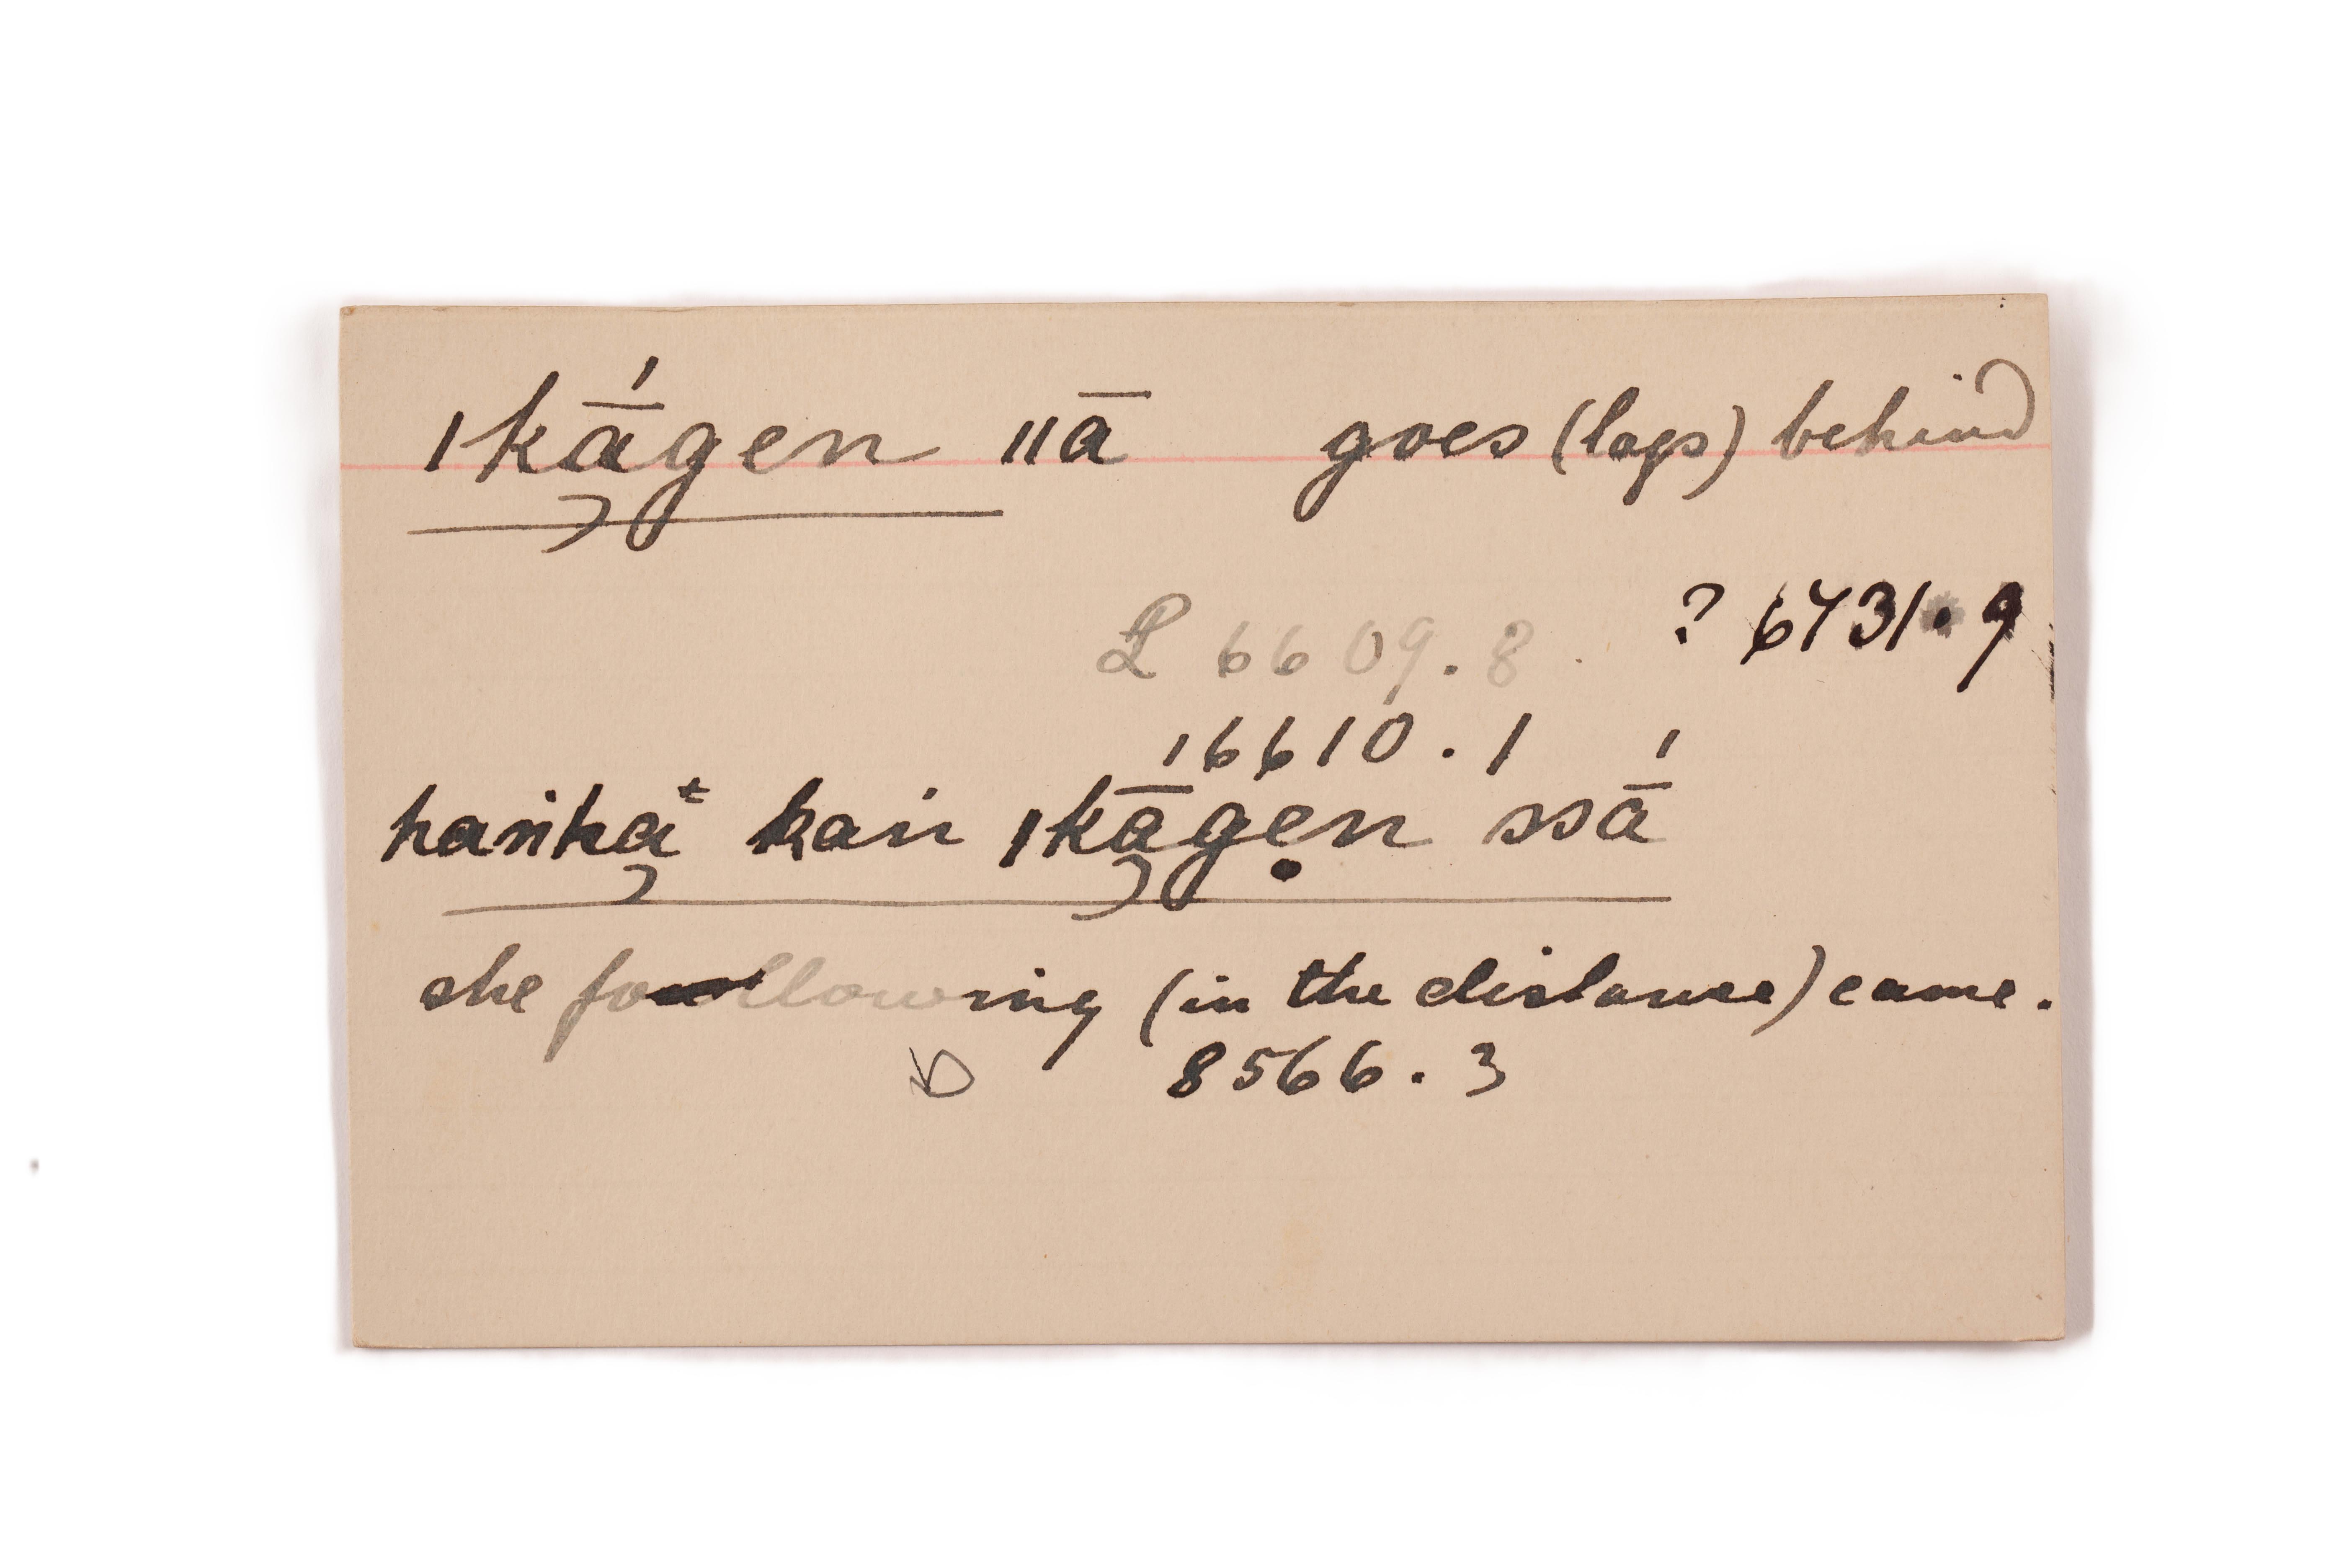 ǀką̄́gen ǁā goes (lags) behind
L 6609.8 ? 6731.9
6610.1
haṅhą̄ᵗ haṅ ǀką̄́gẹn ssā́
she following (in the distance) came.
8566.3